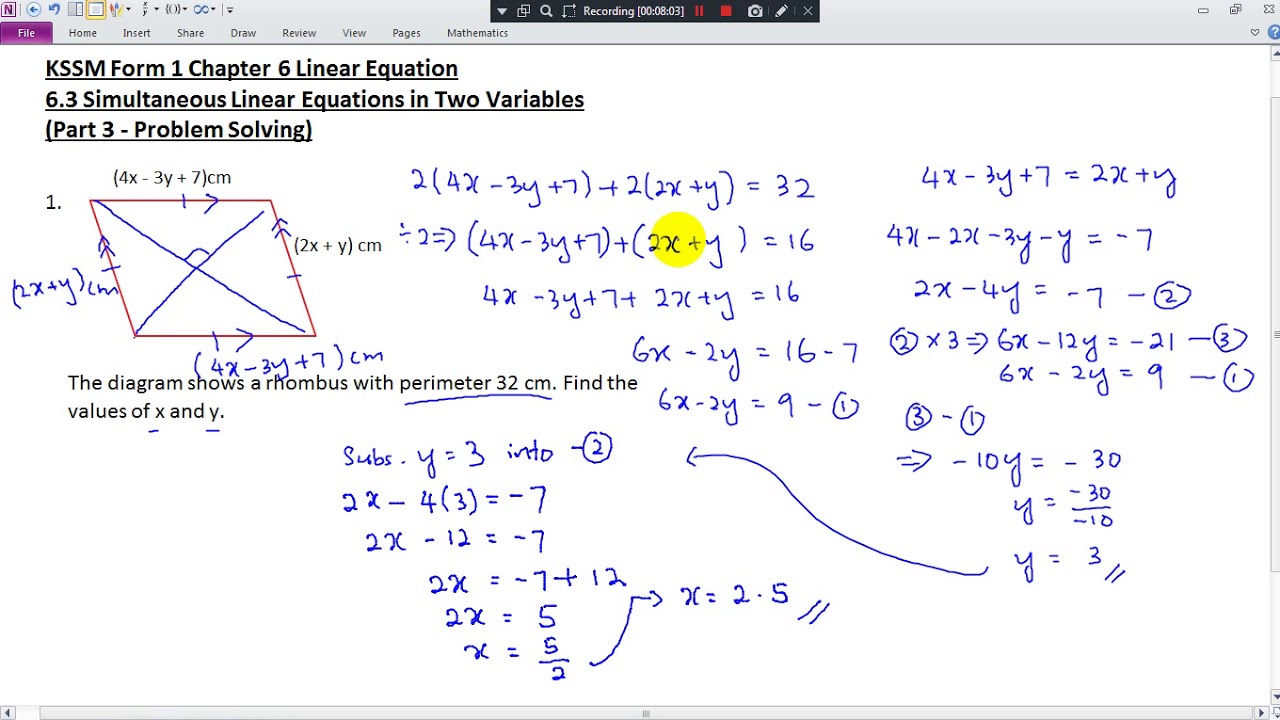 Recording [00:08:03]
File Home Insert Share Draw Review View Pages Mathematics
KSSM Form 1 Chapter 6 Linear Equation
6.3 Simultaneous Linear Equations in Two Variables
(Part 3 - Problem Solving)
1.
(4x - 3y + 7)cm
(2x + y) cm
(2x+y)cm
(4x-3y+7)cm
The diagram shows a rhombus with perimeter 32 cm. Find the
values of x and y.
2(4x-3y+7)+2(2x+y) = 32
÷2⇒ (4x-3y+7)+(2x+y) = 16
4x -3y+7+ 2x+y = 16
6x - 2y = 16 - 7
6x-2y = 9 - ①
4x-3y+7 = 2x+y
4x-2x-3y-y = -7
2x-4y = -7 - ②
② × 3 ⇒ 6x-12y = -21 - ③
6x - 2y = 9 - ①
③ - ①
⇒ -10y = -30
y = -30/-10
y = 3 //
Subs. y = 3 into - ②
2x - 4(3) = -7
2x - 12 = -7
2x = -7+12
2x = 5
x = 5/2
x = 2.5 //